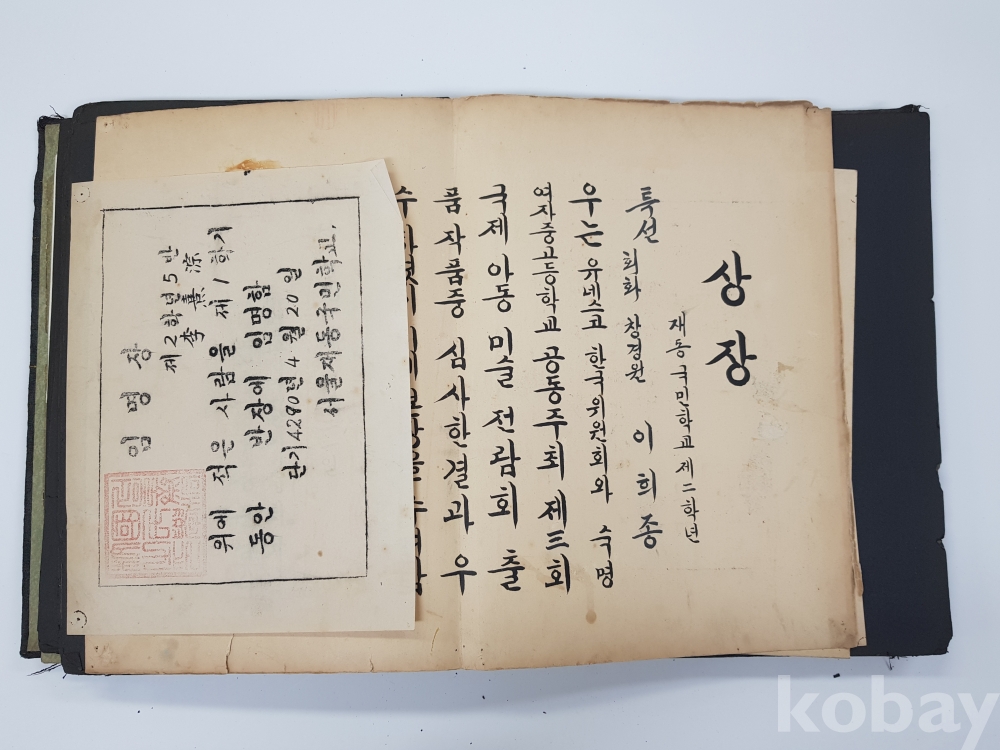 상장
재동국민학교 제二학년
특선 회화 창경원 이희종
우는 유네스코 한국위원회와 숙명
여자중고등학교 공동주최 제三회
국제 아동 미술 전람회 출
품 작품중 심사한결과 우
수
임명장
제2학년5반
李熹淙
위에 적은 사람을 제1학기
동안 반장에 임명함
단기4290년4월20일
서울재동국민학교.
kobay